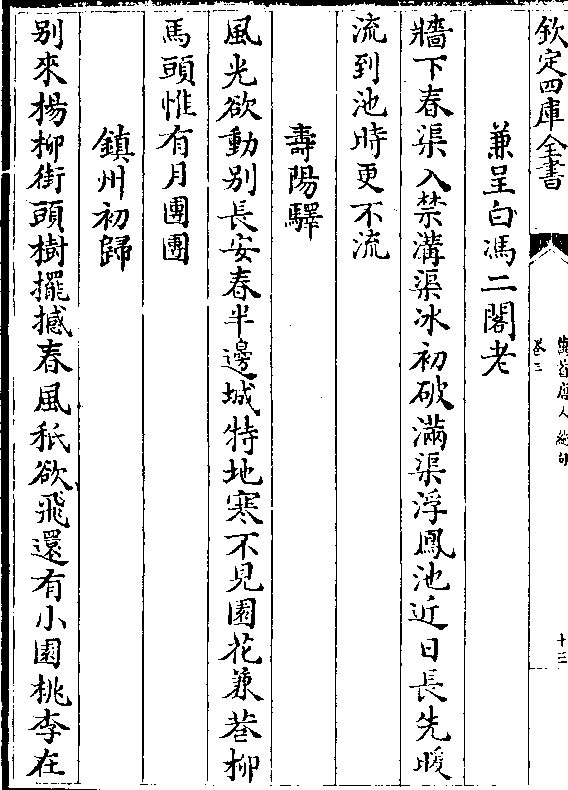 欽定四庫全書
萬首唐人絶句
卷三
十三
兼呈白馮二閣老
牆下春渠入禁溝渠冰初破滿渠浮鳳池近日長先暖
流到池時更不流
壽陽驛
風光欲動別長安春半邊城特地寒不見園花兼巷柳
馬頭惟有月團團
鎮州初歸
别來楊柳街頭樹擺撼春風秖欲飛還有小園桃李在